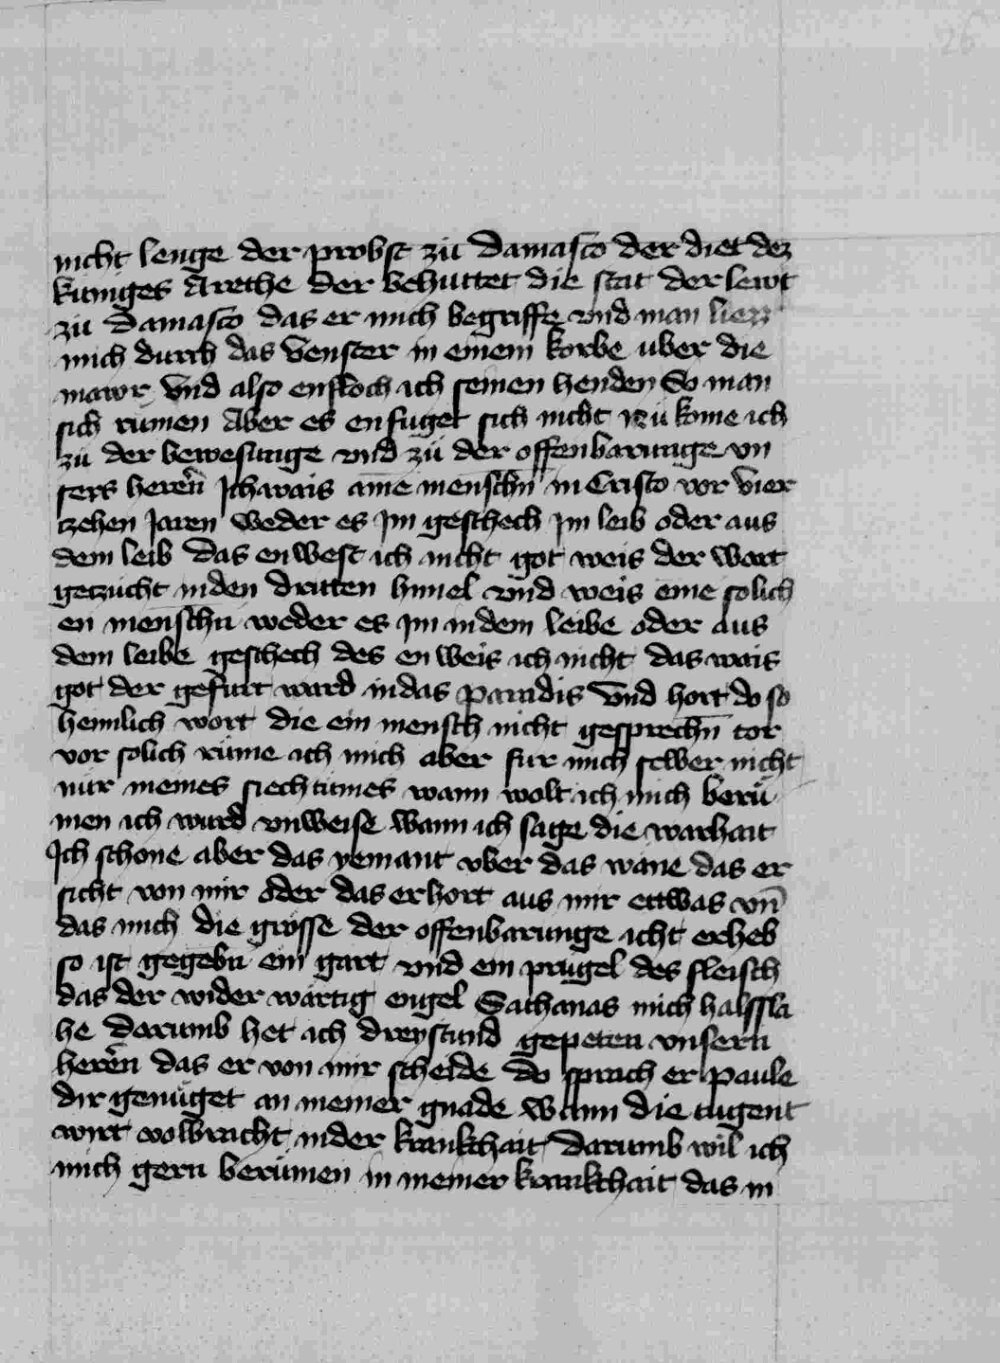 26
nicht lenge der probst zü Damasco der diet dez
küniges Arethe der behuttet die stat der lewt
zü Damasco das er mich begriffe vnd man liezz
mich durch das venster in einem korbe uber die
mawr vnd also enfloch ich seinen henden So man
sich rümen Aber es enfuget sich nicht nü kome ich
zü der bewesunge vnd zü der offenbarunge vn
sers herēn Ich wais aine menschn̄ in Cristo vor vier
zehen Jaren weder es Im geschech Im leib oder aus
dem leib das enwest ich nicht got weis der wart
getzucht in den dritten himel vnd weis eine solich
en menschn̄ weder es im in dem leibe oder aus
dem leibe geschech des en weis ich nicht das wais
got der gefurt ward in das paradis vnd hort do so
heimlich wort die ein mensch nicht gesprechn̄ tor
vor solich rüme ich mich aber fur mich selber nicht
nür meines siechtumes wann wolt ich mich berü
men ich wurd vnweise wann ich sage die warhait
Ich schone aber das yemant vber das wäne das er
sicht von mir oder das er hort aus mir ettwas vn̄
das mich die grösse der offenbarunge icht erheb
so ist gegebn̄ ein gart vnd ein prügel des fleisch
das der wider wärtig engel Sathanas mich halssla
he darumb het ich dreystund gepeten vnsern
herēn das er von mir scheide do sprach er paule
dir genüget an meiner gnade wann die tugent
wirt volbracht in der krankhait darumb wil ich
mich gern berümen in meiner krankhait das in